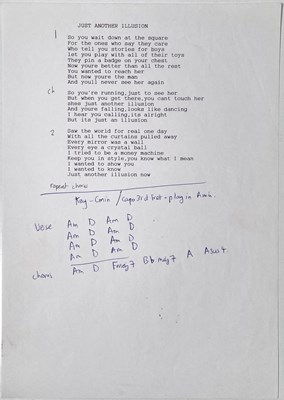 JUST ANOTHER ILLUSION
1 So you wait down at the square
For the ones who say they care
Who tell you stories for boys
let you play with all of their toys
They pin a badge on your chest
Now youre better than all the rest
You wanted to reach her
But now youre the man
And youll never see her again
Ch So you're running,just to see her
But when you get there,you cant touch her
shes just another illusion
And youre falling,looks like dancing
I hear you calling,its alright
But its just an illusion
2 Saw the world for real one day
With all the curtains pulled away
Every mirror was a wall
Every eye a crystal ball
I tried to be a money machine
Keep you in style,you know what I mean
I wanted to show you
I wanted to know
Just another illusion now
repeat chorus
Key - Cmin / capo 3rd fret + play in Amin.
Verse Am D Am D
Am D Am D
Am D Am D
Am D Am D
chorus Am D Fmaj7 Bb maj7 A Asus4.